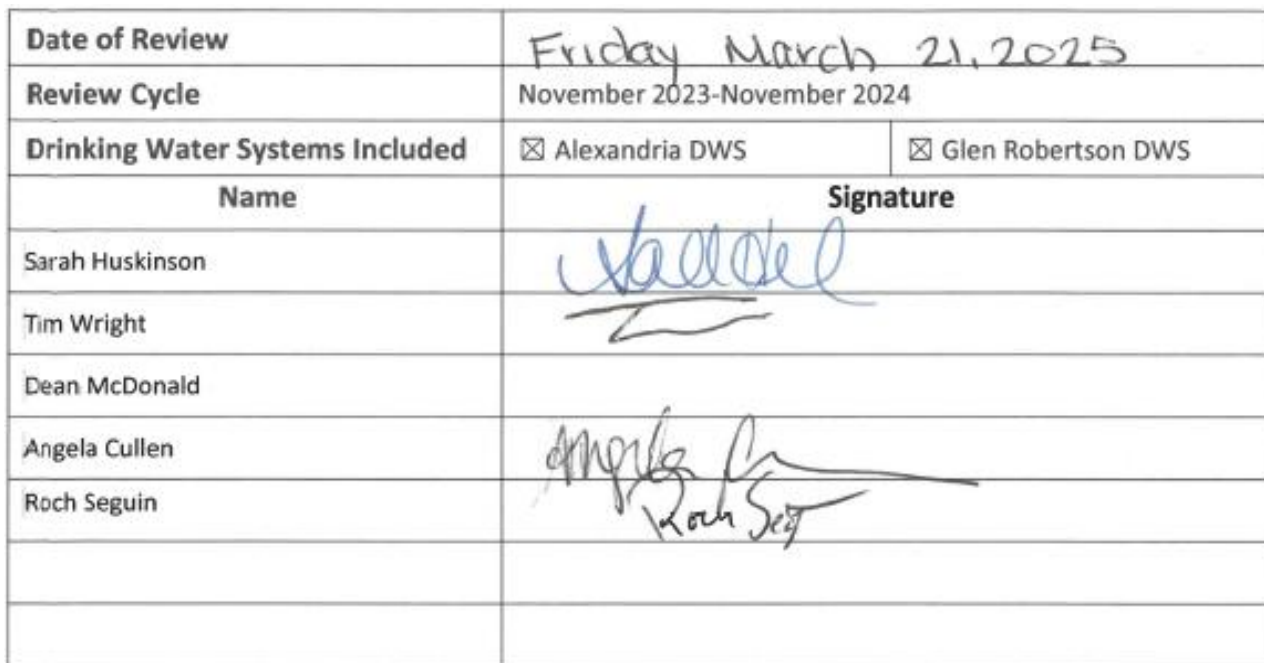 Date of Review Friday March 21, 2025
Review Cycle November 2023-November 2024
Drinking Water Systems Included ☒ Alexandria DWS ☒ Glen Robertson DWS
Name Signature
Sarah Huskinson
Tim Wright
Dean McDonald
Angela Cullen Angela
Roch Seguin Roch